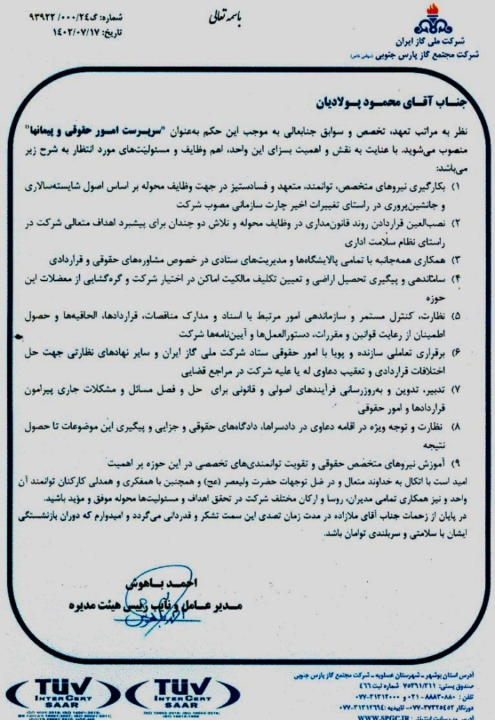 باسمه تعالی
شماره: گ۹۳۹۲۲ /۰۰۰/۲۴
تاریخ: ۱۴۰۲/۰۷/۱۷
شرکت ملی گاز ایران
شرکت مجتمع گاز پارس جنوبی (سهامی خاص)
جناب آقای محمود پولادیان
نظر به مراتب تعهد، تخصص و سوابق جنابعالی به موجب این حکم به‌عنوان "سرپرست امور حقوقی و پیمانها"
منصوب می‌شوید. با عنایت به نقش و اهمیت بسزای این واحد، اهم وظایف و مسئولیت‌های مورد انتظار به شرح زیر
می‌باشد:
۱) بکارگیری نیروهای متخصص، توانمند، متعهد و فسادستیز در جهت وظایف محوله بر اساس اصول شایسته‌سالاری
و جانشین‌پروری در راستای تغییرات اخیر چارت سازمانی مصوب شرکت
۲) نصب‌العین قراردادن روند قانون‌مداری در وظایف محوله و تلاش دو چندان برای پیشبرد اهداف متعالی شرکت در
راستای نظام سلامت اداری
۳) همکاری همه‌جانبه با تمامی پالایشگاه‌ها و مدیریت‌های ستادی در خصوص مشاوره‌های حقوقی و قراردادی
۴) ساماندهی و پیگیری تحصیل اراضی و تعیین تکلیف مالکیت اماکن در اختیار شرکت و گره‌گشایی از معضلات این
حوزه
۵) نظارت، کنترل مستمر و سازماندهی امور مرتبط با اسناد و مدارک مناقصات، قراردادها، الحاقیه‌ها و حصول
اطمینان از رعایت قوانین و مقررات، دستورالعمل‌ها و آیین‌نامه‌ها شرکت
۶) برقراری تعاملی سازنده و پویا با امور حقوقی ستاد شرکت ملی گاز ایران و سایر نهادهای نظارتی جهت حل
اختلافات قراردادی و تعقیب دعاوی له یا علیه شرکت در مراجع قضایی
۷) تدبیر، تدوین و به‌روزرسانی فرآیندهای اصولی و قانونی برای حل و فصل مسائل و مشکلات جاری پیرامون
قراردادها و امور حقوقی
۸) نظارت و توجه ویژه در اقامه دعاوی در دادسراها، دادگاه‌های حقوقی و جزایی و پیگیری این موضوعات تا حصول
نتیجه
۹) آموزش نیروهای متخصص حقوقی و تقویت توانمندی‌های تخصصی در این حوزه پر اهمیت
امید است با اتکال به خداوند متعال و در ضل توجهات حضرت ولیعصر (عج) و همچنین با همفکری و همدلی کارکنان توانمند آن
واحد و نیز همکاری تمامی مدیران، روسا و ارکان مختلف شرکت در تحقق اهداف و مسئولیت‌ها محوله موفق و مؤید باشید.
در پایان از زحمات جناب آقای ملازاده در مدت زمان تصدی این سمت تشکر و قدردانی می‌گردد و امیدوارم که دوران بازنشستگی
ایشان با سلامتی و سربلندی توامان باشد.
احمد باهوش
مدیر عامل و نایب رئیس هیئت مدیره
TÜV
INTERCERT
SAAR
TÜV
INTERCERT
SAAR
آدرس استان بوشهر ـ شهرستان عسلویه ـ شرکت مجتمع گاز پارس جنوبی
صندوق پستی: ۷۵۳۹۱/۳۱۱ شماره ثبت ۴۶۶
تلفن: ۸۸۸۲۰۸۸۰-۰۲۱ و ۳۱۳۱۲۰۰۰-۰۷۷
دورنگار ۳۷۳۲۵۴۵۲-۰۷۷
WWW.SPGC.IR